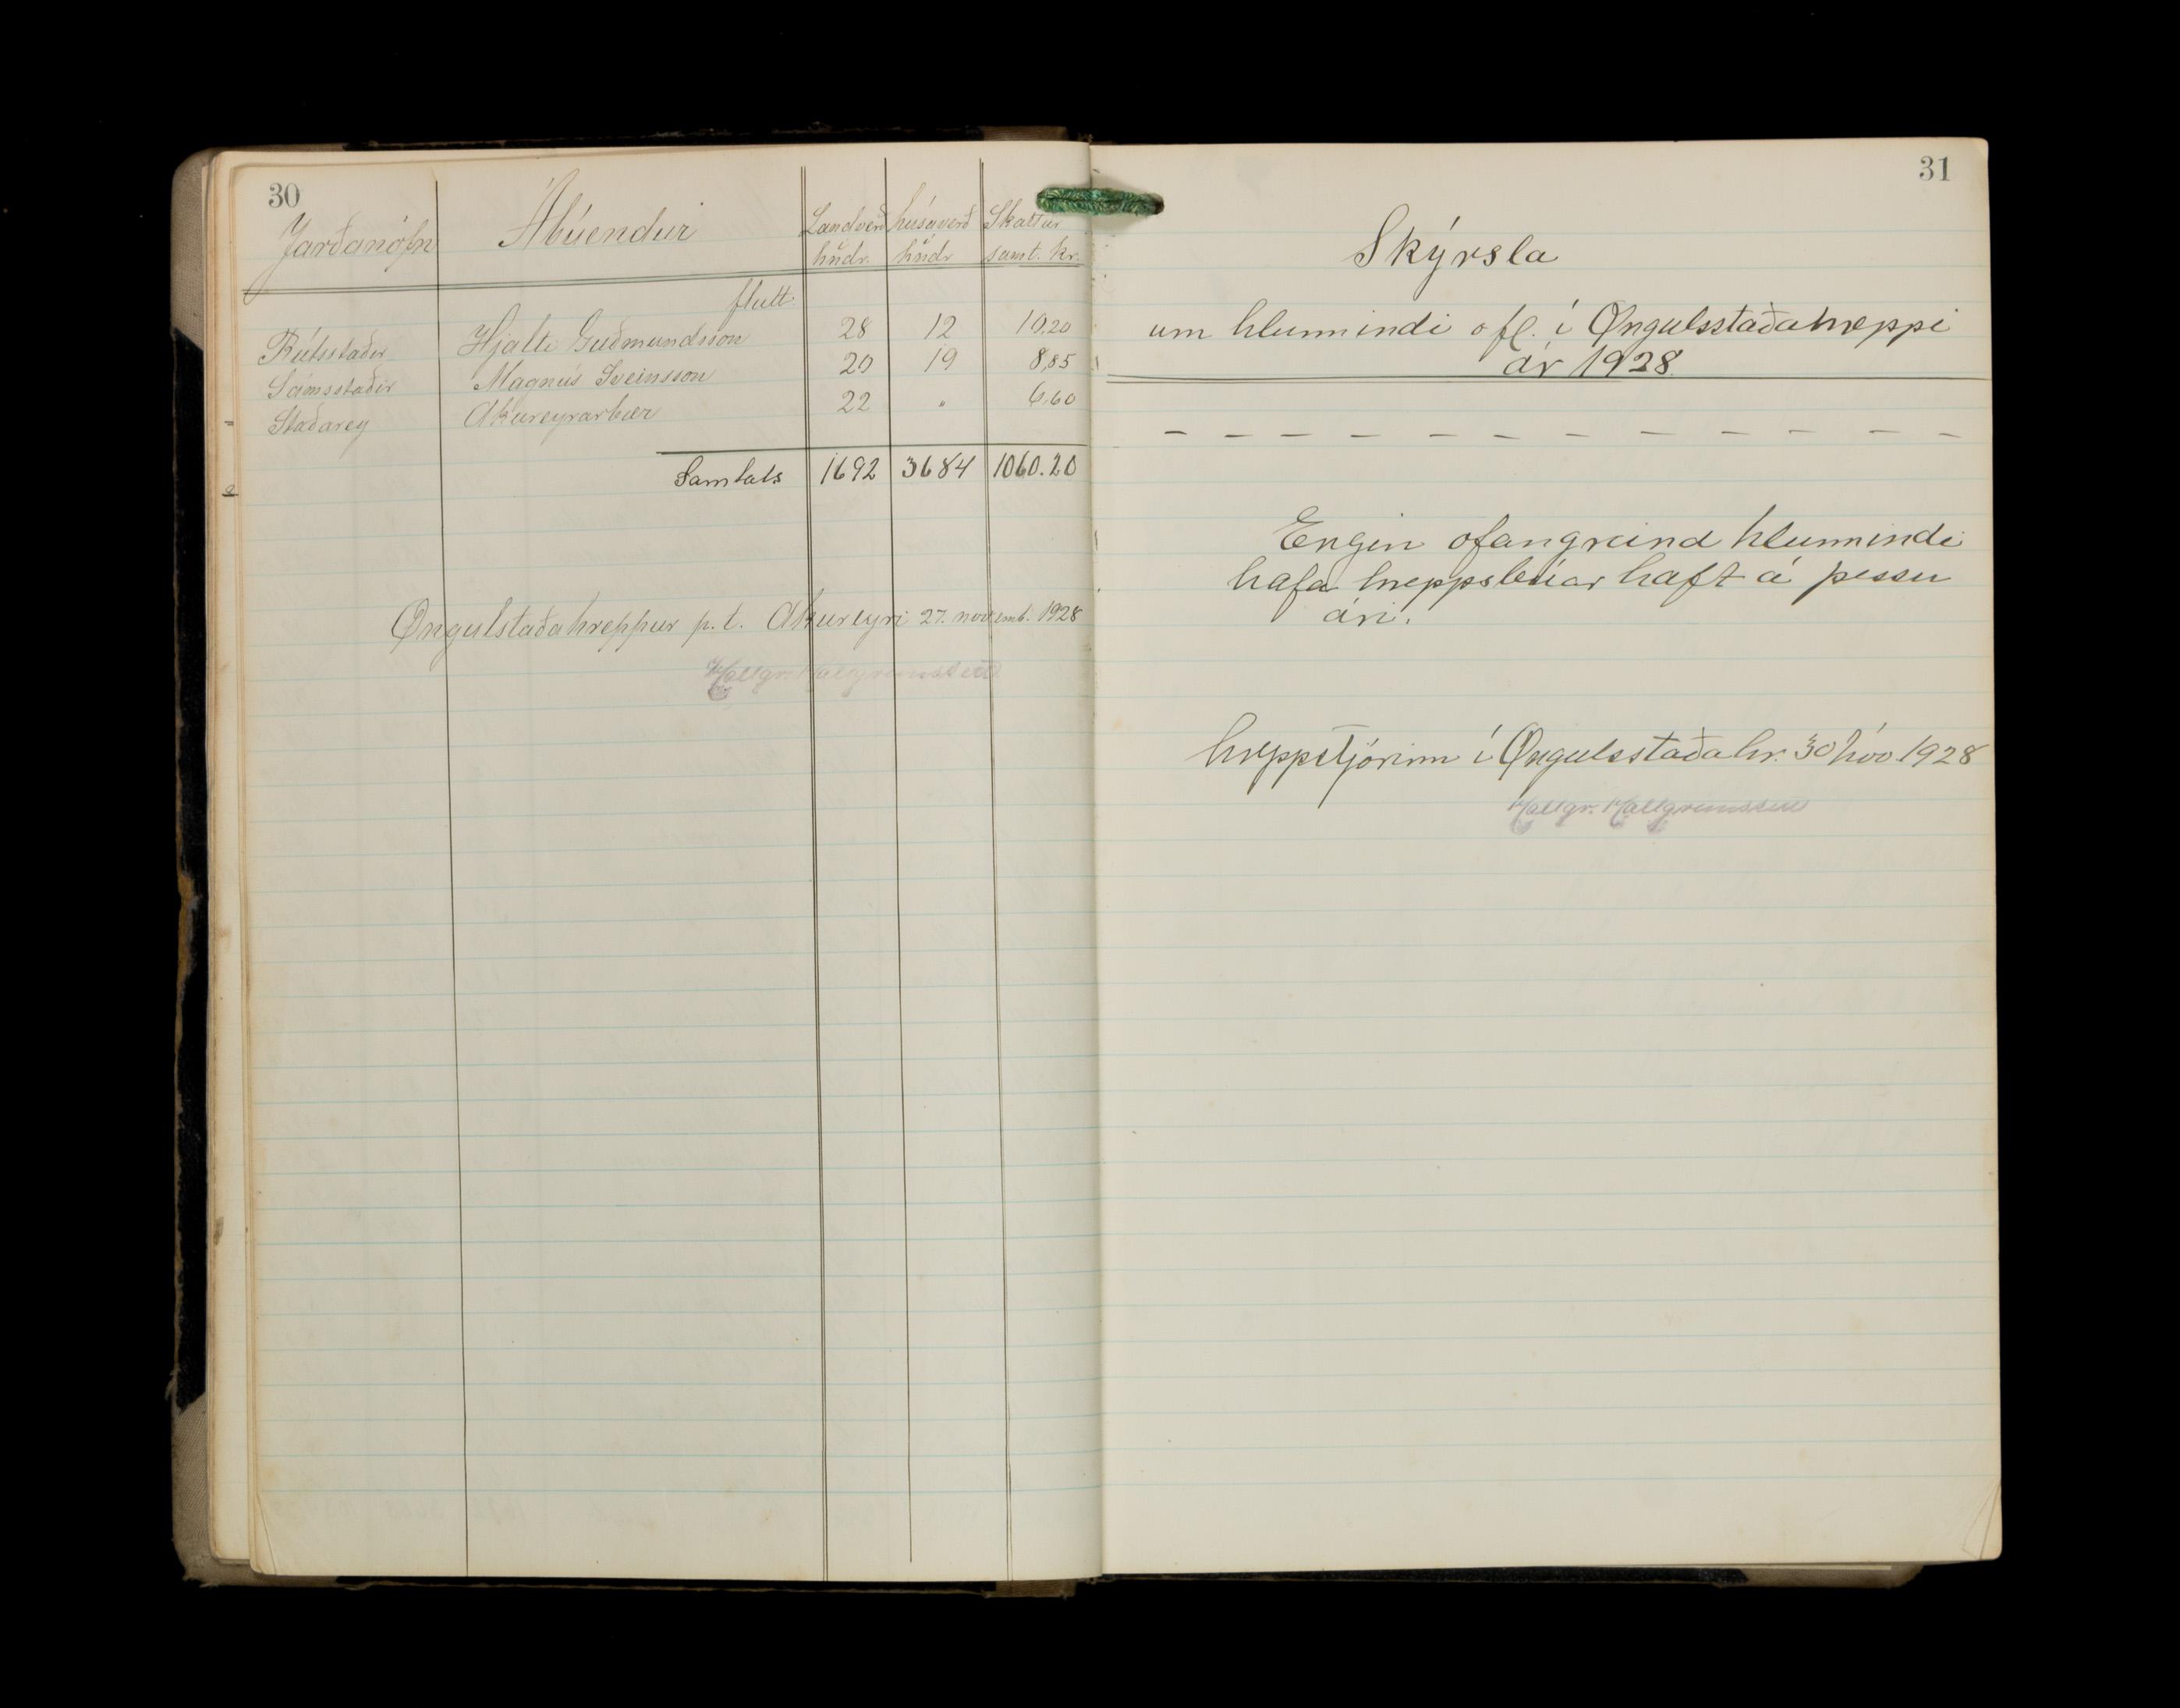 30
Jarðanöfn Ábúendur Landverð hndr. húsaverð hndr Skattur samt. kr.
flutt
Rútsstaðir Hjalti Guðmundsson 28 12 10,20
Sámsstaðir Magnús Sveinsson 20 19 8,85
Staðarey Akureyrarbær 22 " 6,60
Samtals 1692 3684 1060.20
Øngulstaðahreppur p.t. Akureyri 27. novemb. 1928
Hallgr. Hallgrímsson
31
Skýrsla
um hlunnindi o fl. í Øngulsstaðahreppi
ár 1928.
– – – – – – – – – – – –
Engin ofangreind hlunnindi
hafa hreppsbúar haft á þessu
ári.
hreppstjórinn í Øngulsstaðahr. 30 nóv. 1928
Hallgr. Hallgrímsson